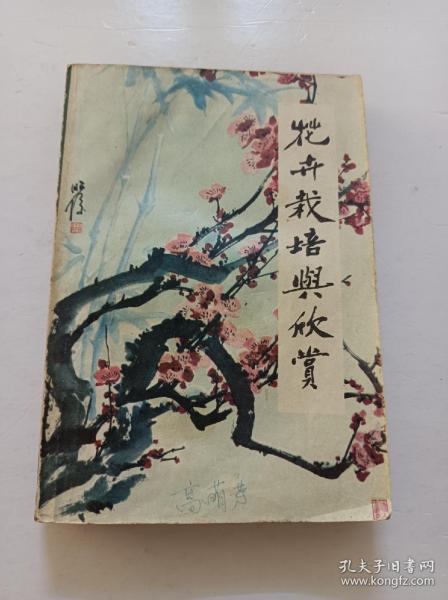 花卉栽培與欣赏
高萌芳
孔夫子旧书网
www.kongfz.com